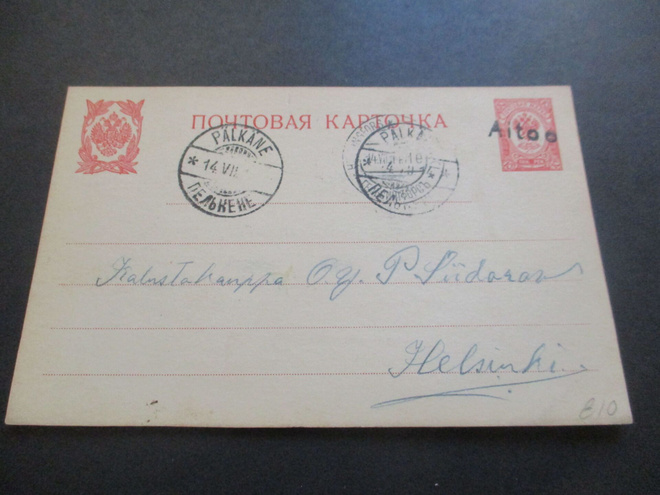 ПОЧТОВАЯ КАРТОЧКА
Aitoo
PÄLKÄNE
14 VII
ПЕЛЬКЕНЕ
PÄLKÄ
Kalustokauppa O.Y. P. Sidorow
Helsinki
€10